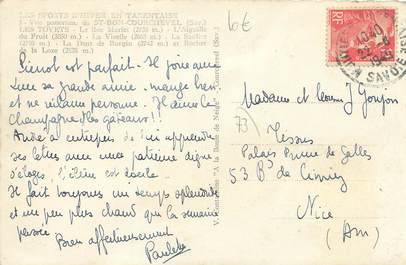 LES SPORTS D'HIVER EN TARENTAISE
Vue panoram. de St-BON-COURCHEVEL (Sav.)
LES TOVETS - Le Roc Merlet (2735 m) - L'Aiguille
du Fruit (3050 m) - La Vizelle (2665 m) - La Saulire
(2708 m) - La Dent de Burgin (2742 m) et Rocher
de la Loze (2526 m)
10€
Pierrot est parfait. Il joue avec
une grande amie. mange bien
et ne réclame personne. Il aime le
Champagne - les gâteaux !!
André a entrepris de lui apprendre
ses lettres avec une patience digne
d'éloges, l'élève est docile
Il fait toujours un temps splendide
et un peu plus chaud que la semaine
passée.
Bien affectueusement
Paulette
"A la Boule de Neige" Courchevel (Sav.)
RF
10 40
SAVOIE
Madame et Monsieur J Goujon
73
Tessons
Palais Prince de Galles
53 Bd de Cimiez
Nice
(Am)